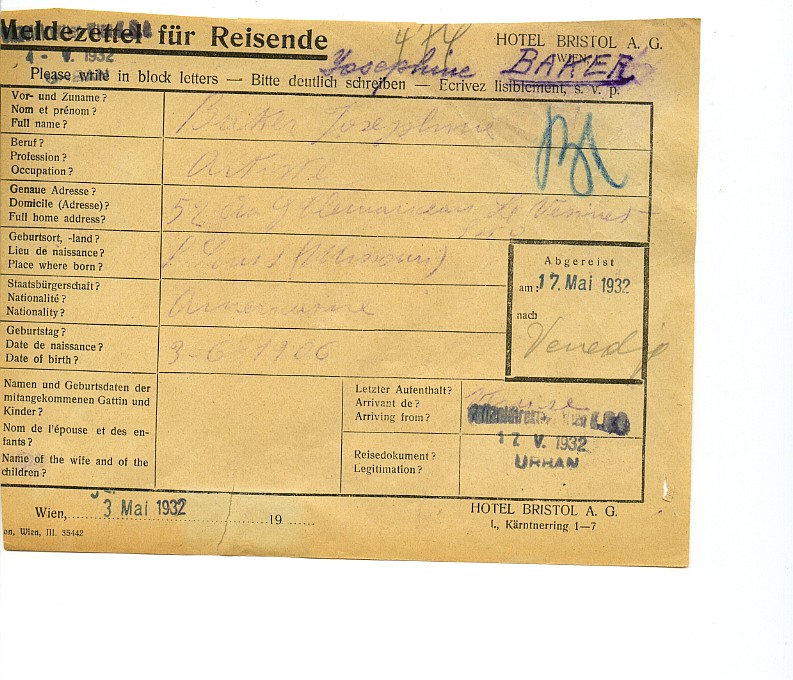 Meldezettel für Reisende
474
HOTEL BRISTOL A. G.
WIEN
4 - V. 1932
Josephine BAKER
Please write in block letters — Bitte deutlich schreiben — Ecrivez lisiblement, s. v. p.
Vor- und Zuname?
Nom et prénom?
Full name?
Baker Josephine
Beruf?
Profession?
Occupation?
Artiste
Genaue Adresse?
Domicile (Adresse)?
Full home address?
52 Clemanceau Le Vésinet
Geburtsort, -land?
Lieu de naissance?
Place where born?
St Louis (Missouri)
Staatsbürgerschaft?
Nationalité?
Nationality?
Américaine
Geburtstag?
Date de naissance?
Date of birth?
3-6-1906
Abgereist
am: 17. Mai 1932
nach
Venedig
Namen und Geburtsdaten der
mitangekommenen Gattin und
Kinder?
Nom de l'épouse et des en-
fants?
Name of the wife and of the
children?
Letzter Aufenthalt?
Arrivant de?
Arriving from?
17 V. 1932
URBAN
Reisedokument?
Legitimation?
Wien, 3 Mai 1932 19
HOTEL BRISTOL A. G.
I., Kärntnerring 1—7
on, Wien, III. 35442